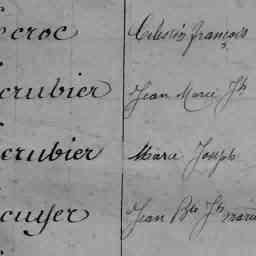 ecroc Celestin françois
crubier Jean Marie Jh
crubier Marie Joseph
cuyer Jean Bte Jh marie